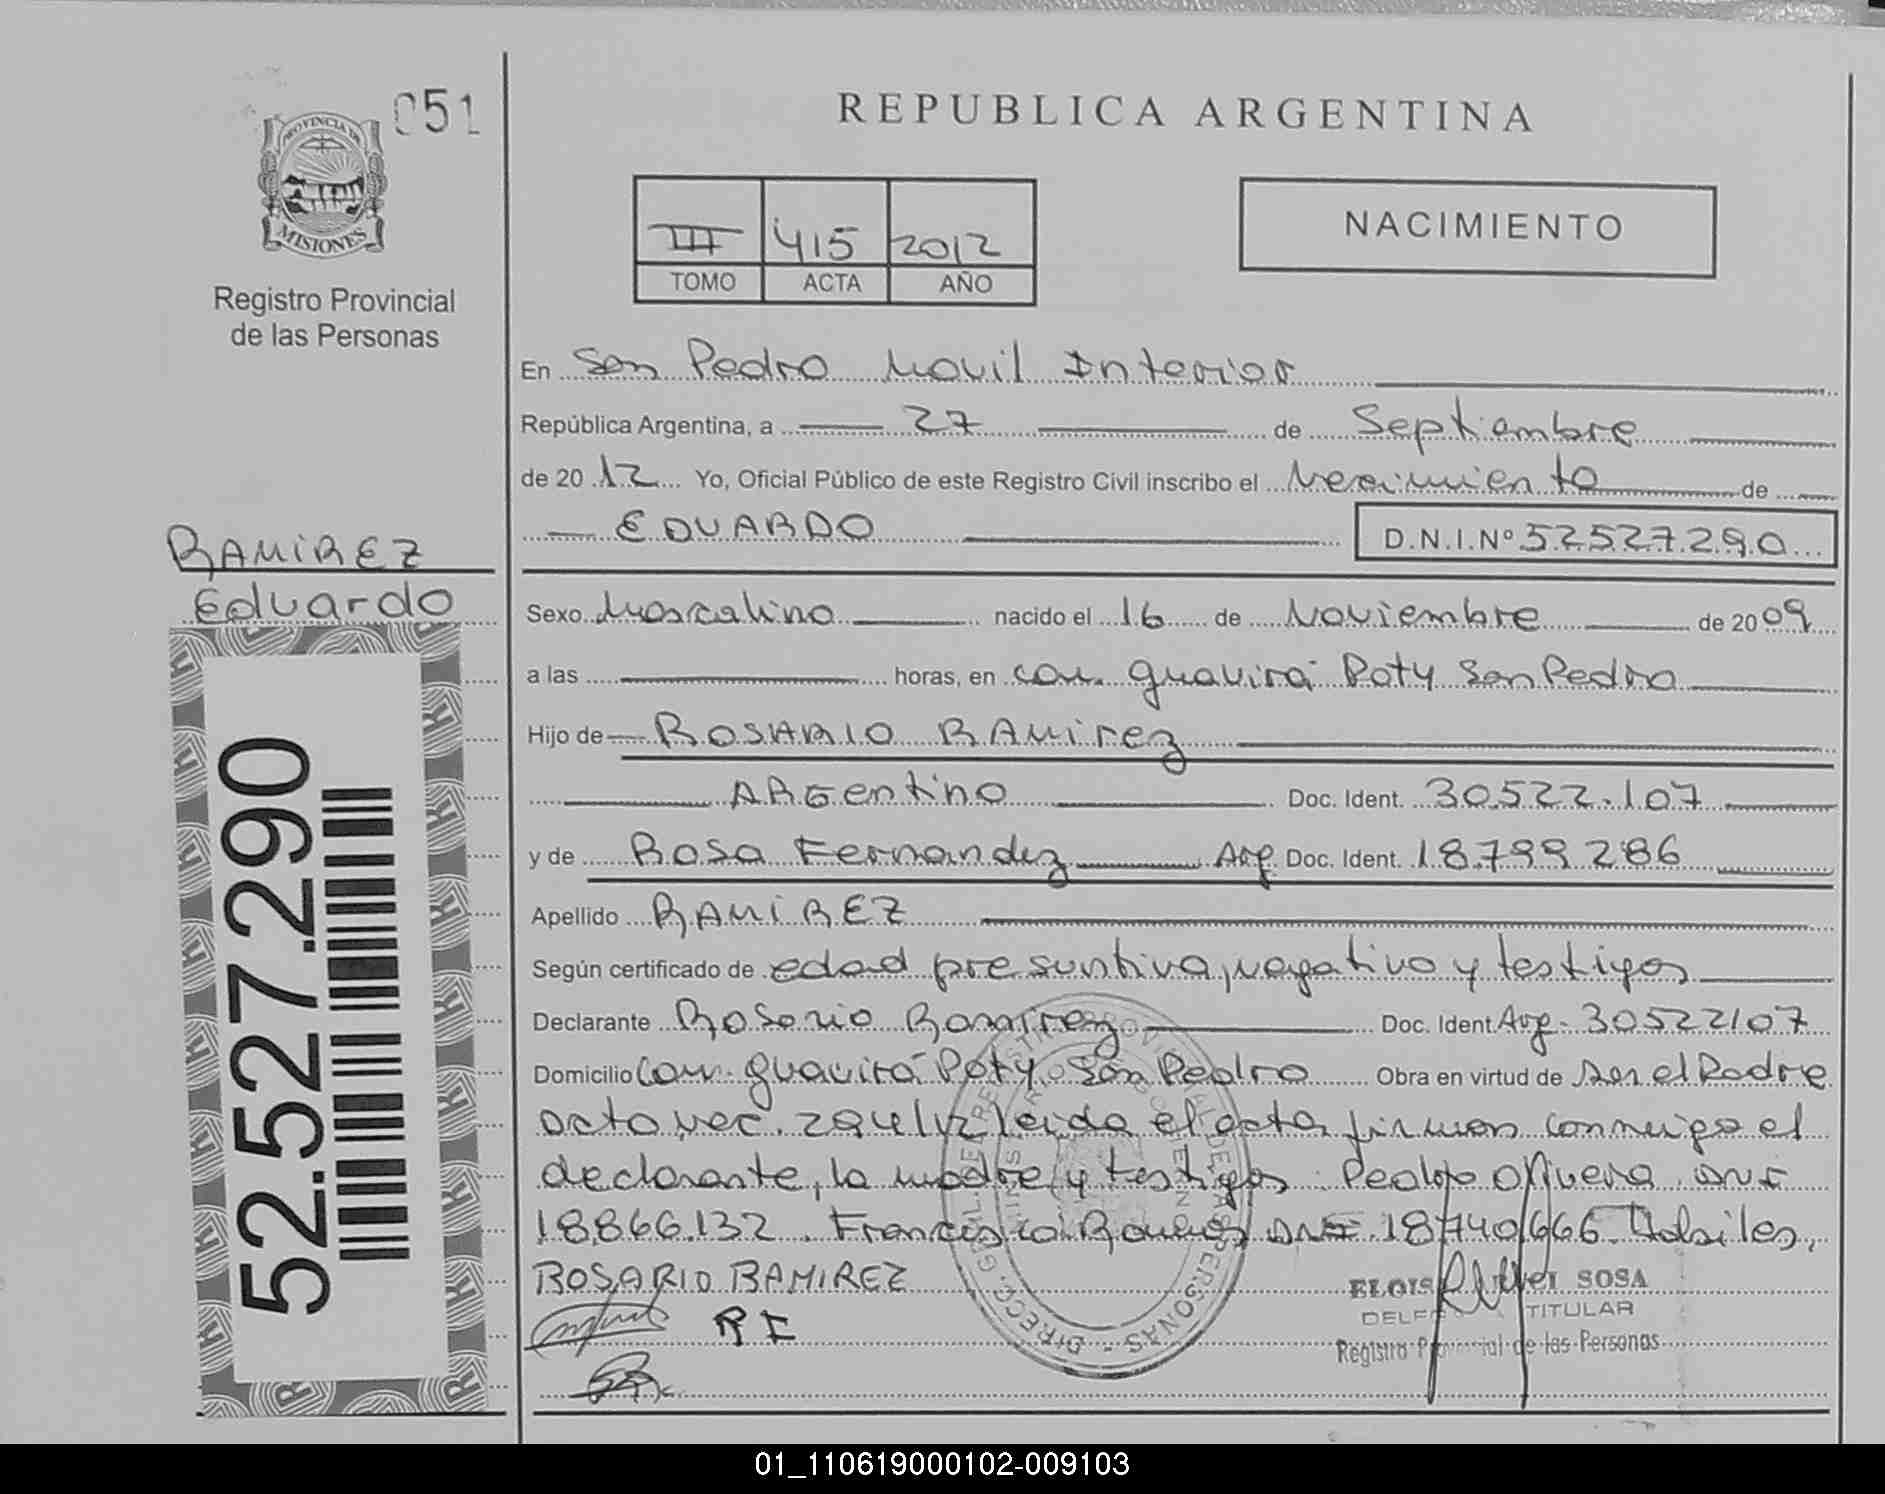 051
PROVINCIA DE
MISIONES
Registro Provincial
de las Personas
REPUBLICA ARGENTINA
III 415 2012
TOMO ACTA AÑO
NACIMIENTO
En San Pedro Movil Interior
República Argentina, a 27 de Septiembre
de 2012 Yo, Oficial Público de este Registro Civil inscribo el Nacimiento de
EDUARDO D.N.I.Nº 52527290
RAMIREZ
Eduardo
52.527.290
Sexo Masculino nacido el 16 de Noviembre de 2009
a las horas, en com. guavirá Poty San Pedro
Hijo de ROSARIO RAMIREZ
ARGentino Doc. Ident. 30.522.107
y de Rosa Fernandez Arg. Doc. Ident. 18.799.286
Apellido RAMIREZ
Según certificado de edad presuntiva, negativo y testigos
Declarante Rosario Ramirez Doc. Ident Arg. 30522107
Domicilio Com. guavirá Poty San Pedro Obra en virtud de ser el Padre
acta nac. 294/12 leida el acta, firman conmigo el
declarante, la madre y testigos Pedro Olivera DNI
18.866.132. Francisco DNI 18740666.
ROSARIO RAMIREZ
ELOIS SOSA
TITULAR
Registro Provincial de las Personas
R F
01_110619000102-009103